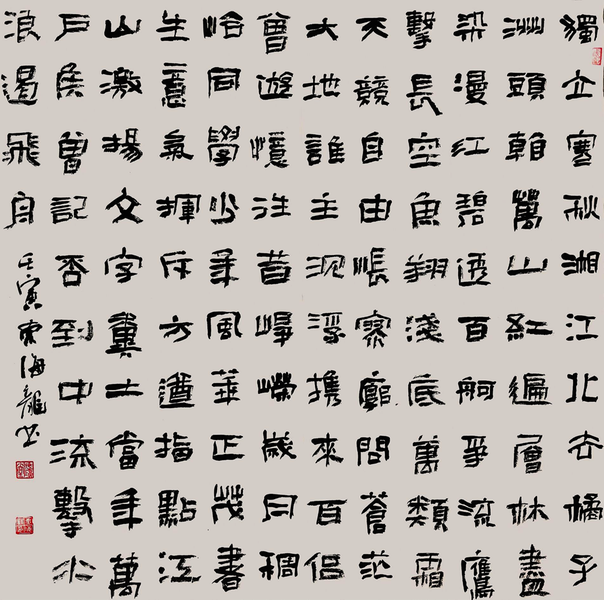 獨立寒秋湘江北去橘子
洲頭看萬山紅遍層林盡
染漫紅碧透百舸爭流鷹
擊長空魚翔淺底萬類霜
天競自由悵寥廓問蒼茫
大地誰主沉浮攜來百侶
曾遊憶往昔崢嶸歲月稠
恰同學少年風華正茂書
生意氣揮斥方遒指點江
山激揚文字糞土當年萬
戶侯曾記否到中流擊水
浪遏飛舟
壬寅海龍书